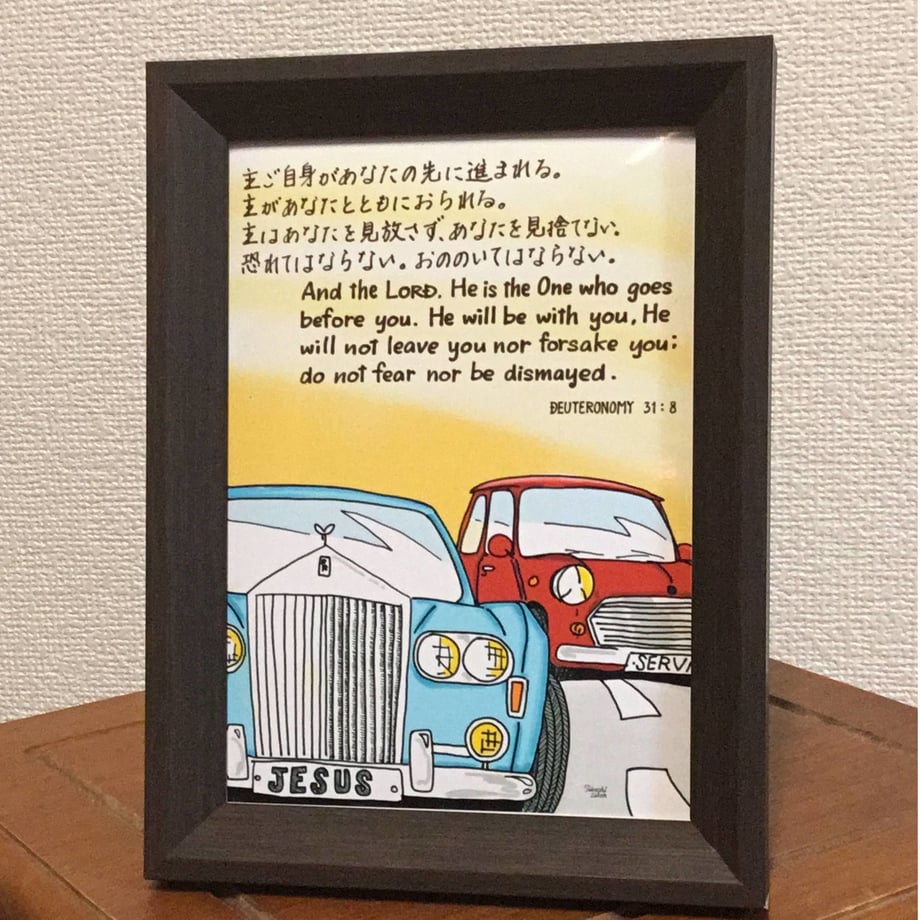 主ご自身があなたの先に進まれる。
主があなたとともにおられる。
主はあなたを見放さず、あなたを見捨てない。
恐れてはならない。おののいてはならない。
And the LORD, He is the One who goes
before you. He will be with you, He
will not leave you nor forsake you;
do not fear nor be dismayed.
DEUTERONOMY 31:8
·SERV
JESUS